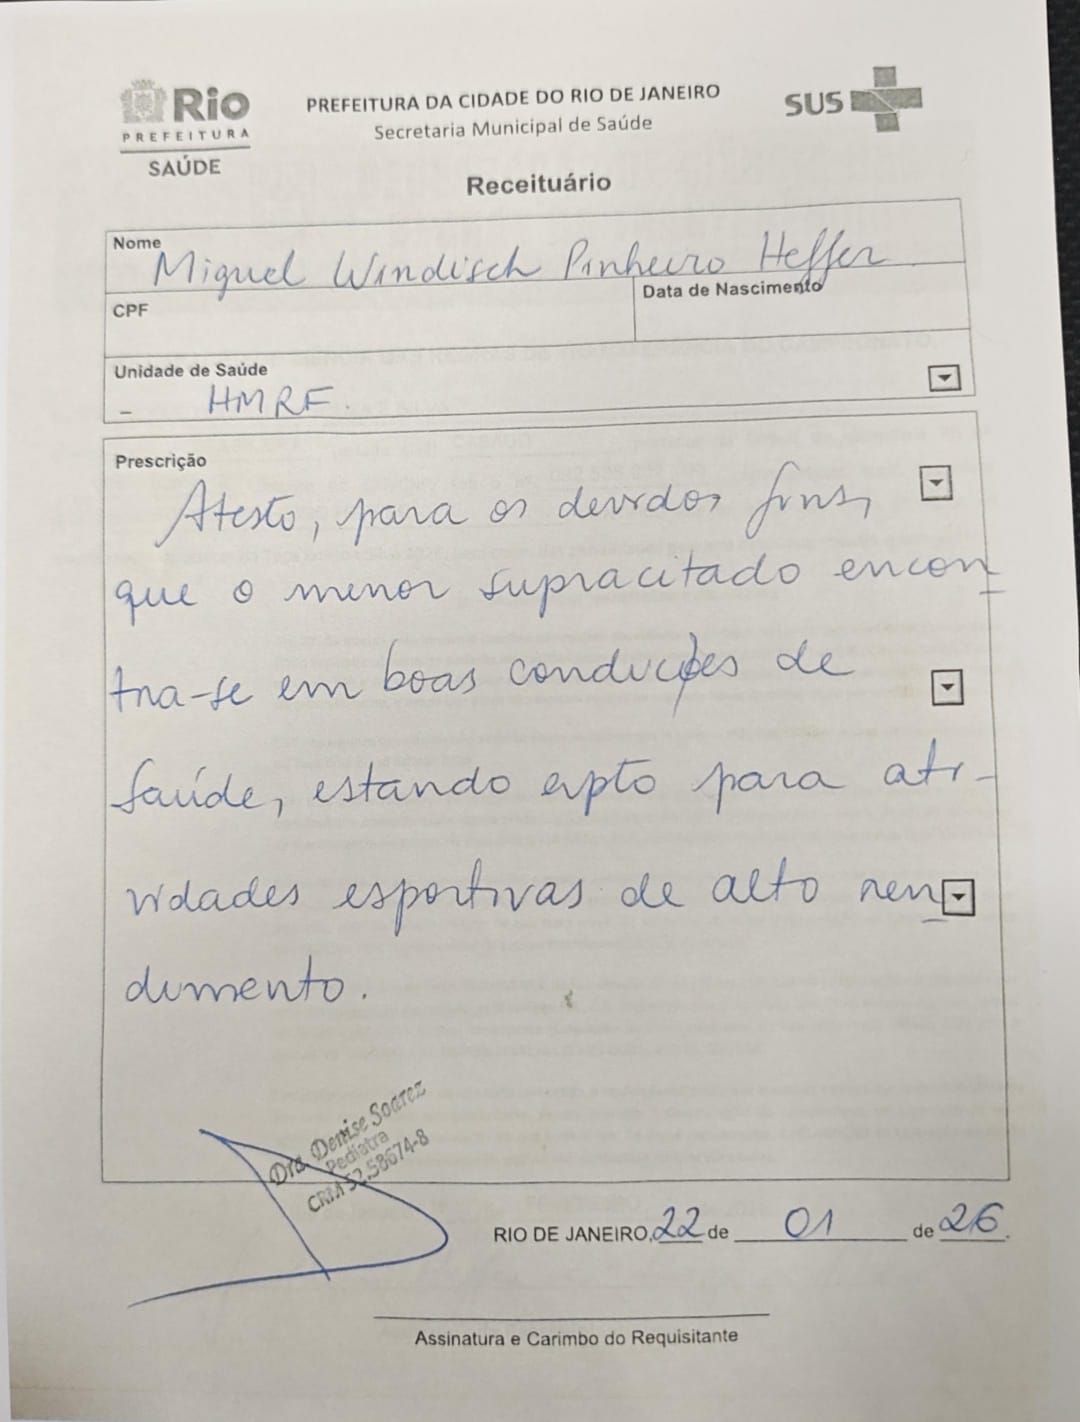 Rio
PREFEITURA
SAÚDE
PREFEITURA DA CIDADE DO RIO DE JANEIRO
Secretaria Municipal de Saúde
SUS
Receituário
Nome
Miguel Windisch Pinheiro Heffer
CPF
Data de Nascimento
Unidade de Saúde
– HMRF.
Prescrição
Atesto, para os devidos fins,
que o menor supracitado encon
tra-se em boas condições de
saúde, estando apto para ati-
vidades esportivas de alto ren
dimento.
Dra. Denise Soarez
Pediatra
CRM 52.58674-8
RIO DE JANEIRO, 22 de 01 de 26.
Assinatura e Carimbo do Requisitante